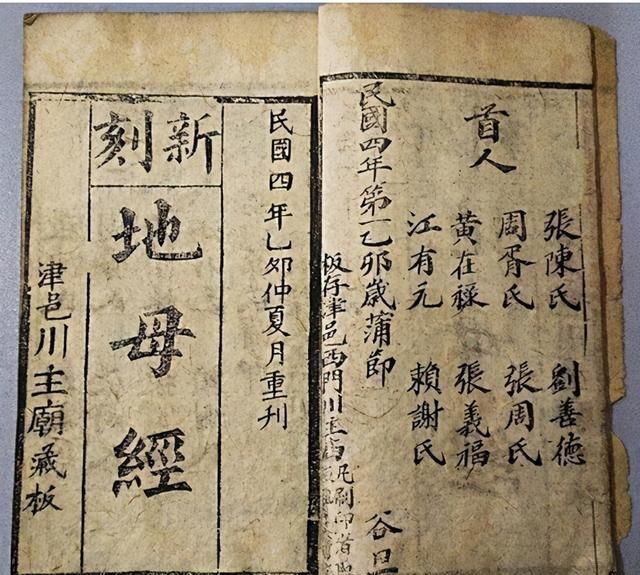 首人
張陳氏　劉善德
周胥氏　張周氏
黄在禄　張義福
江有元　賴謝氏
民國四年第一乙卯歲蒲節　谷旦
板存津邑西門川主庙凡刷印首
民國四年乙夘仲夏月重刊
新刻
地母經
津邑川主廟藏板